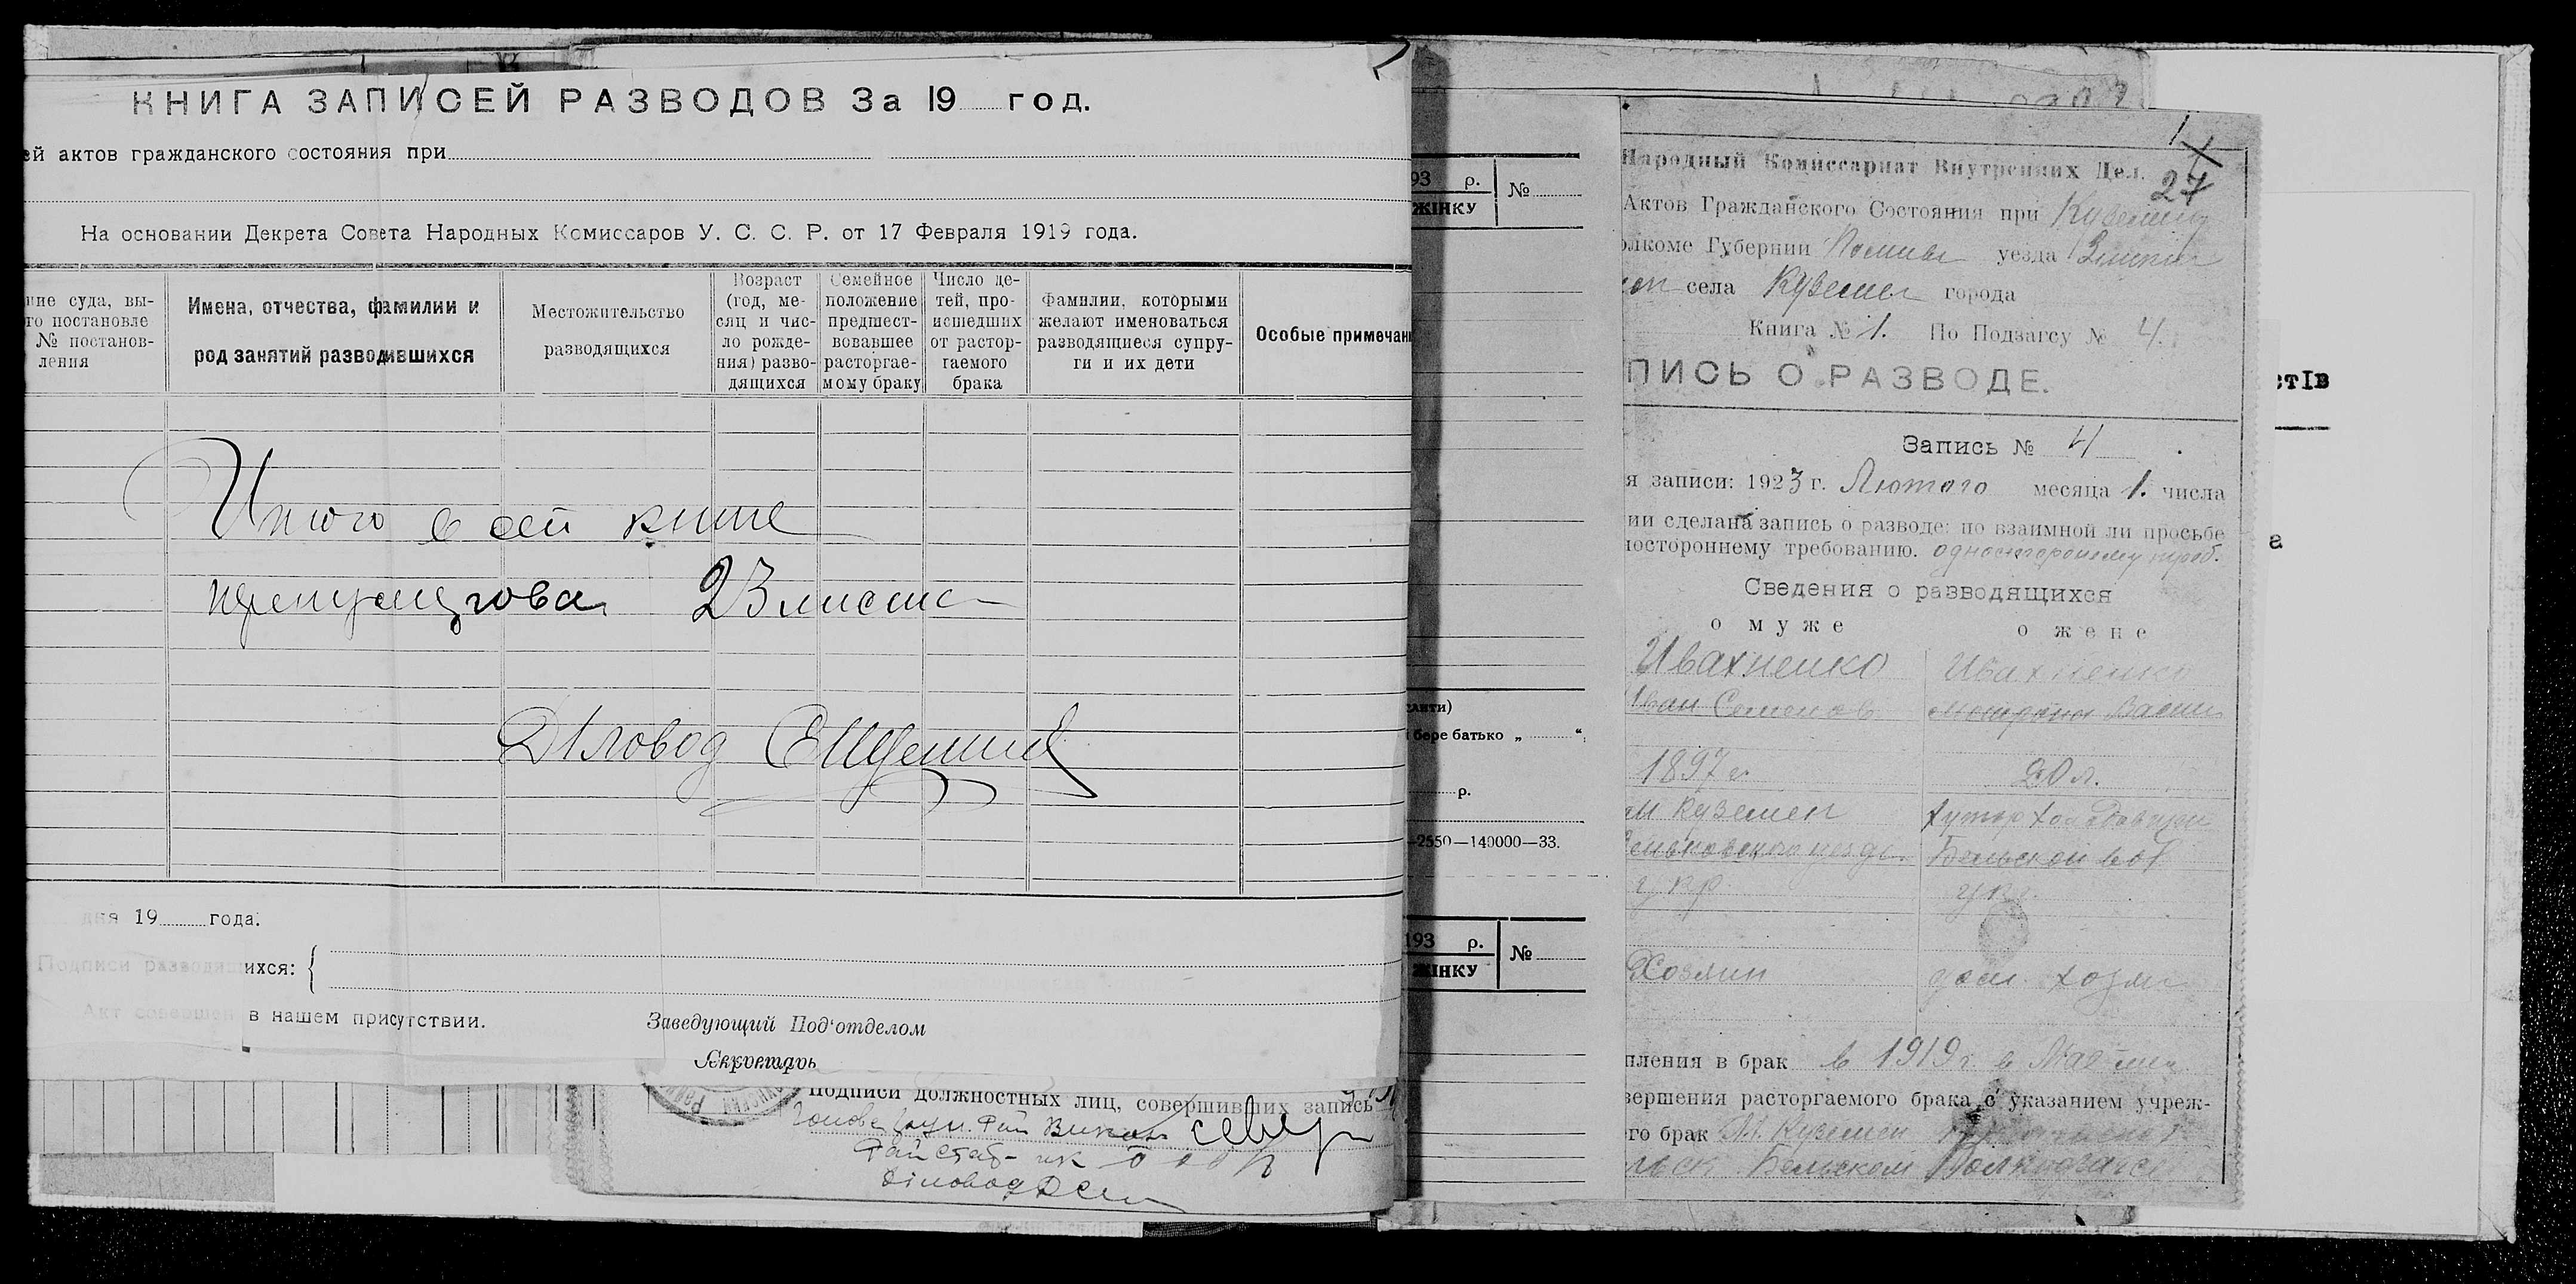 КНИГА ЗАПИСЕЙ РАЗВОДОВ За 19 год.
ей актов гражданского состояния при
На основании Декрета Совета Народных Комиссаров У. С. С. Р. от 17 Февраля 1919 года.
ние суда, вы-
го постановле
№ постанов-
ления
Имена, отчества, фамилии и
род занятий разводившихся
Местожительство
разводящихся
Возраст
(год, ме-
сяц и чис-
ло рожде-
ния) разво-
дящихся
Семейное
положение
предшест-
вовавшее
расторгае-
мому браку
Число де-
тей, про-
исшедших
от растор-
гаемого
брака
Фамилии, которыми
желают именоваться
разводящиеся супру-
ги и их дети
Особые примечан
Итого в сей книге
23 листа
Діловод
дня 19 года.
Подписи разводящихся:
Акт совершен в нашем присутствии.
Заведующий Под'отделом
Секретарь
Подписи должностных лиц, совершивших запись
Діловод
93 р.
№
ЖІНКУ
бере батько „ “
р.
—2550—140000—33.
193 р.
№
ЖІНКУ
1
27
Народный Комиссариат Внутренних Дел.
Актов Гражданского Состояния при
олкоме Губернии уезда
села Куземен города
Книга № 1. По Подзагсу № 4.
ПИСЬ О РАЗВОДЕ.
Запись № 4
я записи: 1923 г. Лютого месяца 1. числа
ии сделана запись о разводе: по взаимной ли просьбе
ностороннему требованию. одностороннему треб.
Сведения о разводящихся
о муже
о жене
Ивахненко
Ивахненко
Иван Семенов
Мотрона Васил
1897 г.
20 л.
м Куземен
хутор
уезда
Бельской вол
укр.
укр.
Хозяин
дом. хозяй
пления в брак в 1919 г. в Мае
вершения расторгаемого брака с указанием учреж-
го брак М. Куземен
Бельском
стІв
а